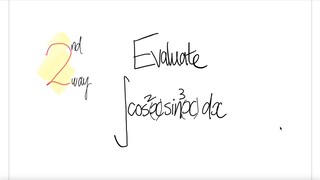 2nd way
Evaluate
∫cos²(x)sin³(x)dx